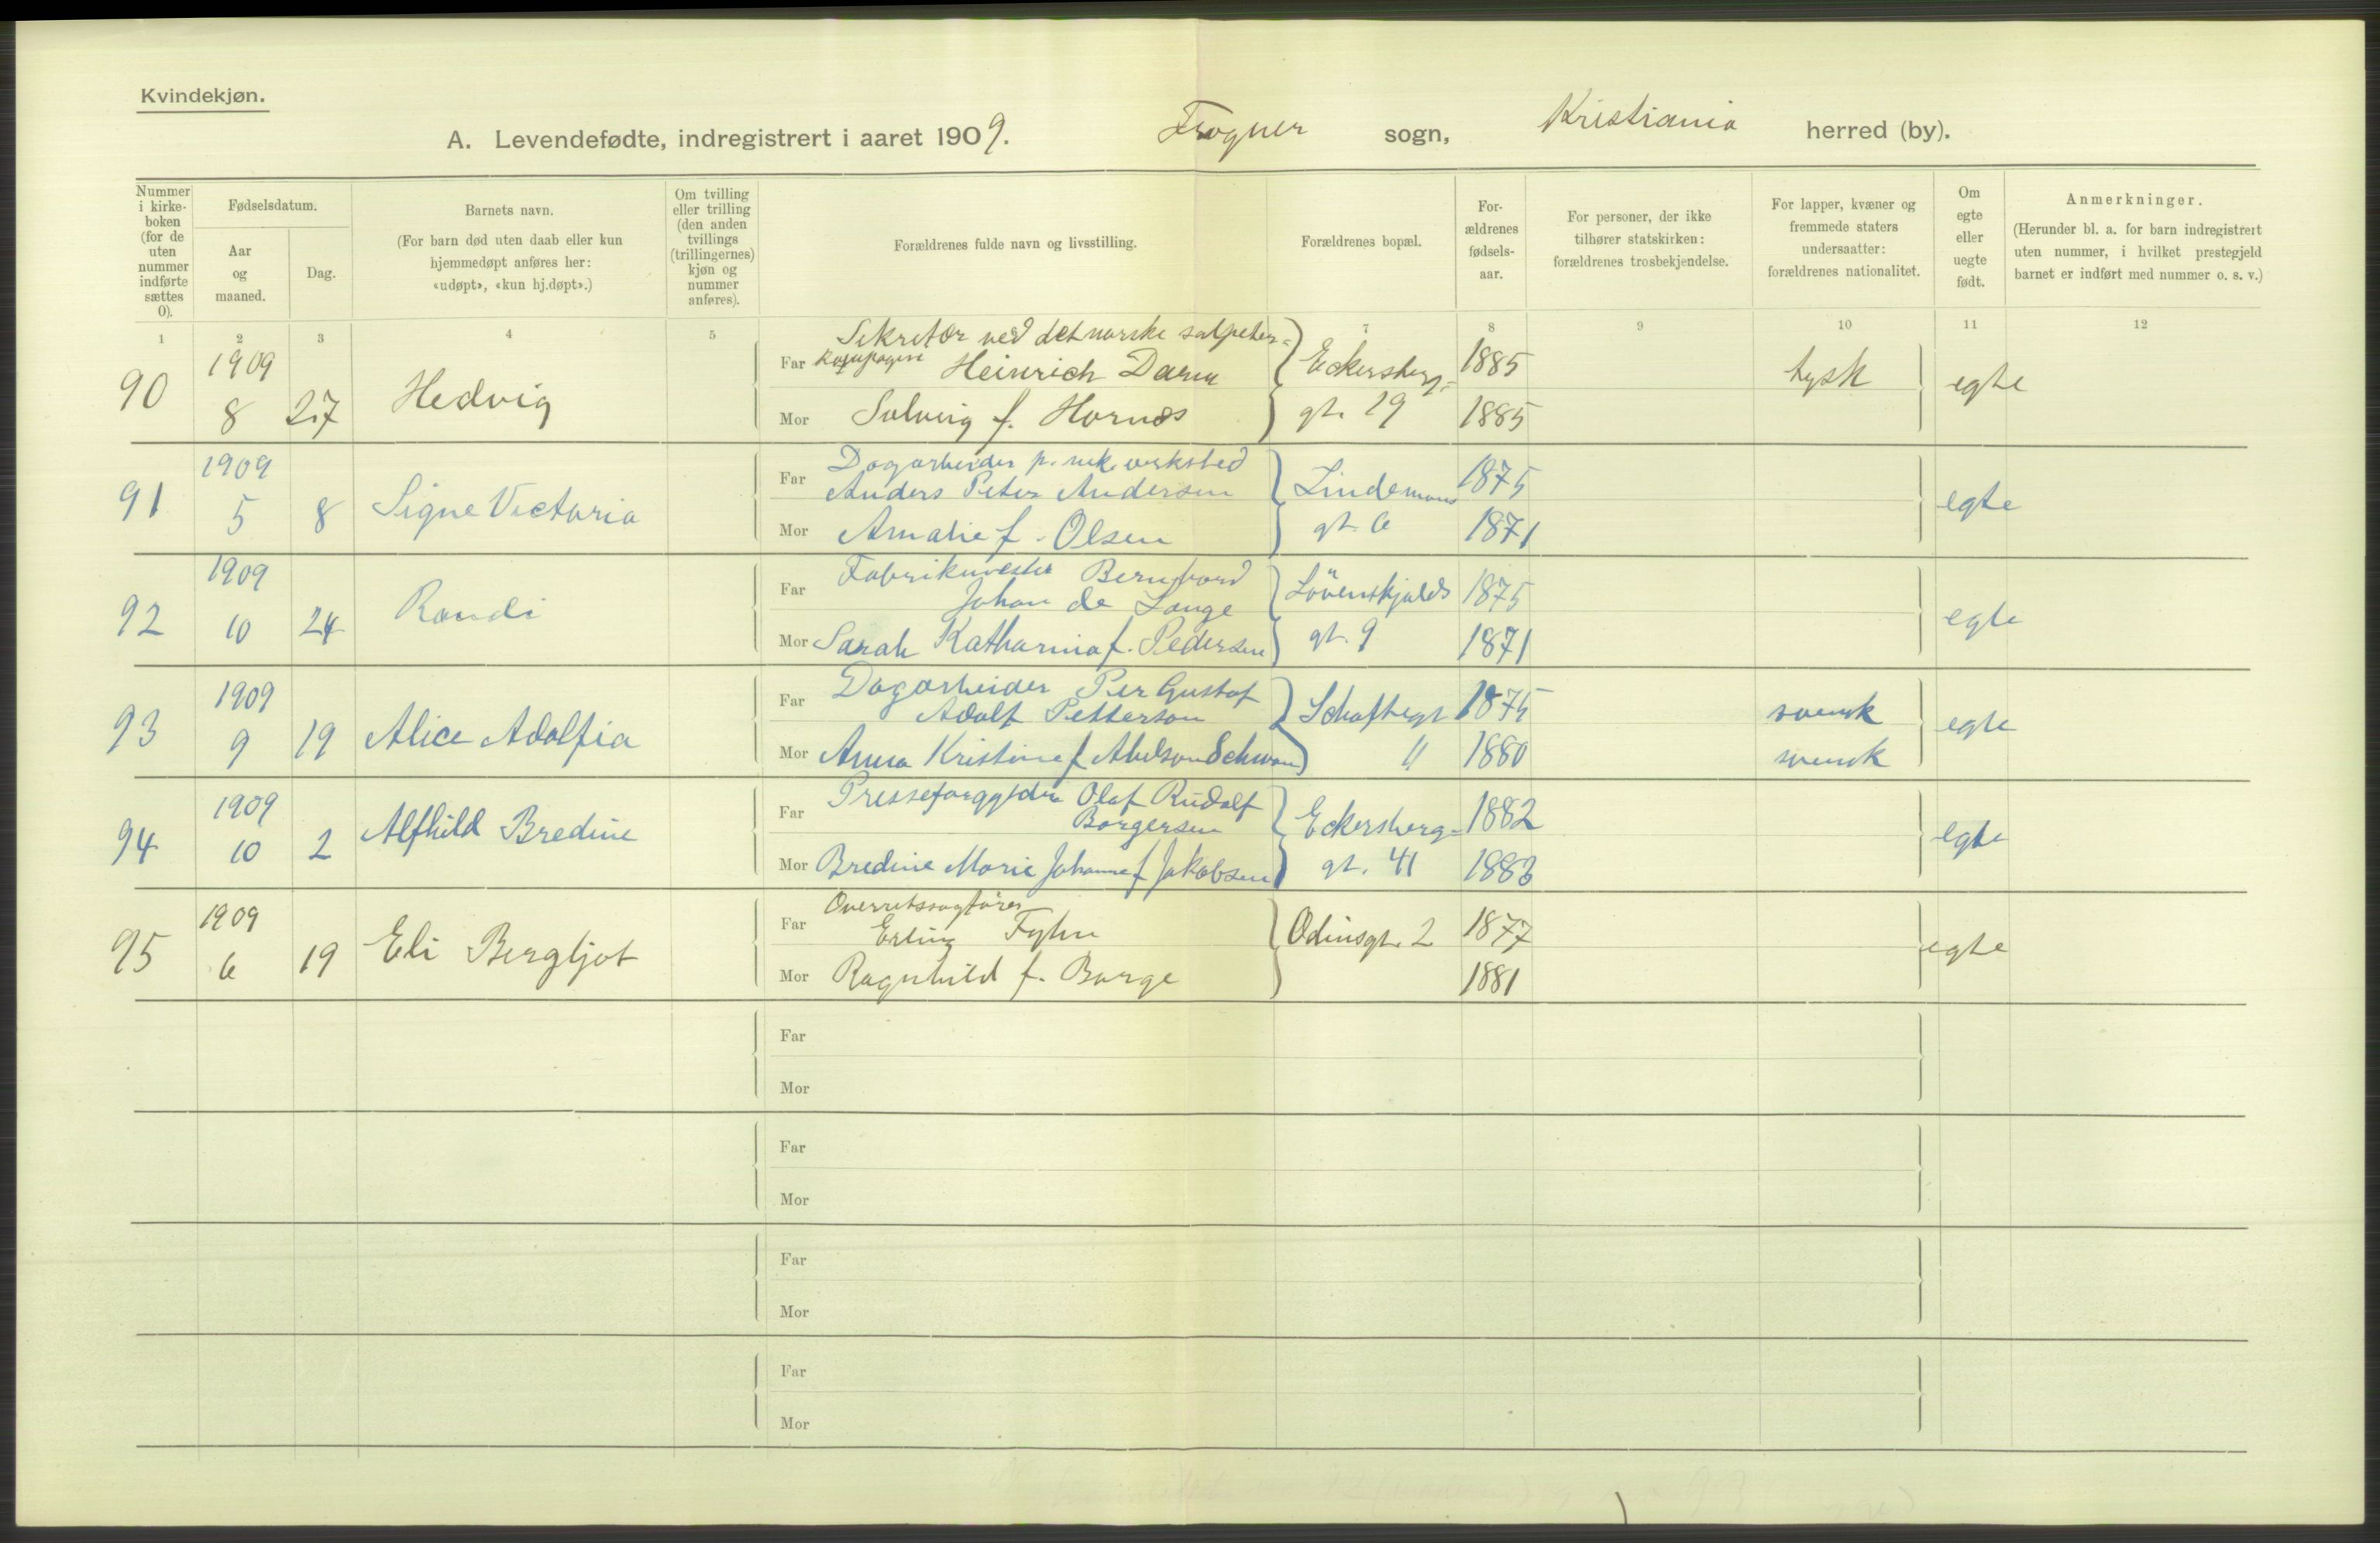 Kvindekjøn.
A. Levendefødte, indregistrert i aaret 1909. Frogner sogn, Kristiania herred (by).
Nummer i kirke-boken (for de uten nummer indførte sættes 0).
Fødselsdatum.
Aar og maaned.
Dag.
Barnets navn.
(For barn død uten daab eller kun hjemmedøpt anføres her: «udøpt», «kun hj.døpt».)
Om tvilling eller trilling (den anden tvillings (trillingernes) kjøn og nummer anføres).
Forældrenes fulde navn og livsstilling.
Forældrenes bopæl.
For-ældrenes fødsels-aar.
For personer, der ikke tilhører statskirken: forældrenes trosbekjendelse.
For lapper, kvæner og fremmede staters undersaatter: forældrenes nationalitet.
Om egte eller uegte født.
Anmerkninger.
(Herunder bl. a. for barn indregistrert uten nummer, i hvilket prestegjeld barnet er indført med nummer o. s. v.)
1 2 3 4 5 7 8 9 10 11 12
Sekretær ved det norske salpeter-
90 1909 8 27 Hedvig Far Heinrich Eckersberg- 1885 tysk egte
Mor Solveig f. Hornæs gt. 19 1885
Dagarbeider p. mek. verksted
91 1909 5 8 Signe Victoria Far Anders Peter Andersen Lindemans 1875 egte
Mor Amalie f. Olsen gt. 6 1871
Far Fabrikmester
92 1909 10 24 Randi Johan de Lange Lövenskjolds 1875 egte
Mor Sarah Katharina f. Pedersen gt. 9 1871
Far Dagarbeider Per Gustaf
93 1909 9 19 Alice Adolfia Adolf Petterson 1875 svensk egte
Mor Anna Kristina f. " 1880 svensk
Far Olaf Rudolf
94 1909 10 2 Alfhild Bredine Borgersen Eckersberg- 1882 egte
Mor Bredine Marie Johanne f. Jakobsen gt. 41 1883
Overretssagfører
95 1909 6 19 Eli Bergljot Far Erling Fyhn Odinsgt. 2 1877 egte
Mor Ragnhild f. Borge 1881
Far
Mor
Far
Mor
Far
Mor
Far
Mor